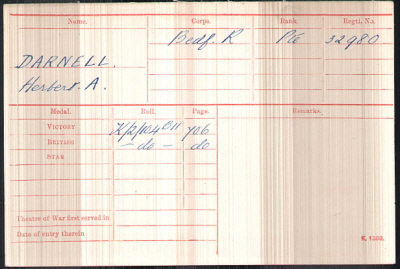 Name. Corps. Rank. Regtl. No.
DARNELL. Bedf. R Pte 32980
Herbert. A.
Medal. Roll. Page. Remarks.
VICTORY K/2/104B11 706
BRITISH - do - do
STAR
Theatre of War first served in
Date of entry therein
K. 1380.